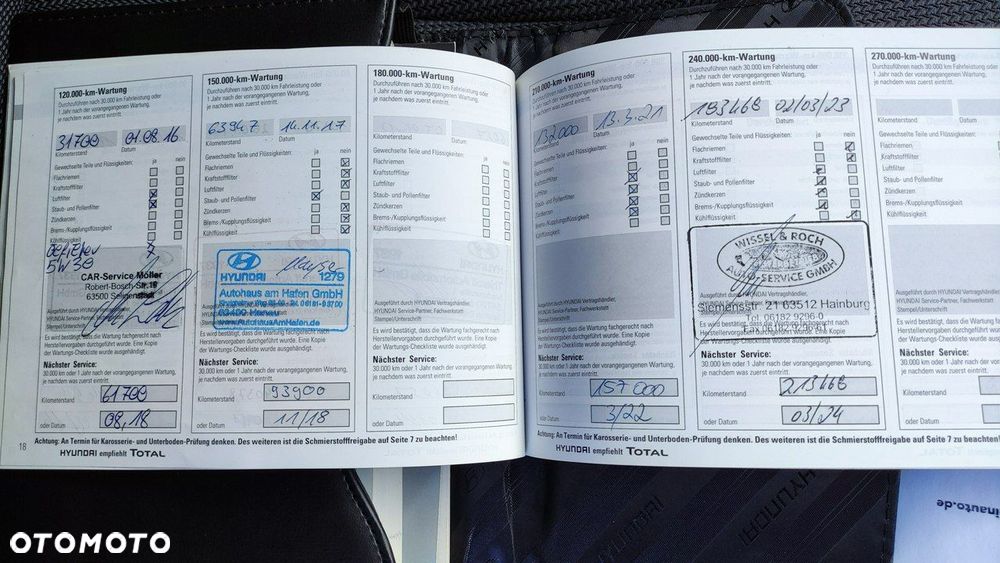 120.000-km-Wartung
Durchzuführen nach 30.000 km Fahrleistung oder
1 Jahr nach der vorangegangenen Wartung,
je nachdem was zuerst eintritt.
31700 01.08.16
Kilometerstand Datum
Gewechselte Teile und Flüssigkeiten: ja nein
Flachriemen
Kraftstofffilter
Luftfilter
Staub- und Pollenfilter
Zündkerzen
Brems-/Kupplungsflüssigkeit
Kühlflüssigkeit
5W30
CAR-Service Möller
Robert-Bosch-Str. 18
63500 Seligenstadt
Es wird bestätigt, dass die Wartung fachgerecht nach
Herstellervorgaben durchgeführt wurde. Eine Kopie
der Wartungs-Checkliste wurde ausgehändigt.
Nächster Service:
30.000 km oder 1 Jahr nach der vorangegangenen Wartung,
je nachdem was zuerst eintritt.
Kilometerstand 61700
oder Datum 08,18
150.000-km-Wartung
Durchzuführen nach 30.000 km Fahrleistung oder
1 Jahr nach der vorangegangenen Wartung,
je nachdem was zuerst eintritt.
63947 14.11.17
Kilometerstand Datum
Gewechselte Teile und Flüssigkeiten: ja nein
Flachriemen
Kraftstofffilter
Luftfilter
Staub- und Pollenfilter
Zündkerzen
Brems-/Kupplungsflüssigkeit
Kühlflüssigkeit
HYUNDAI 1279
Autohaus am Hafen GmbH
www.AutohausAmHafen.de
Es wird bestätigt, dass die Wartung fachgerecht nach
Herstellervorgaben durchgeführt wurde. Eine Kopie
der Wartungs-Checkliste wurde ausgehändigt.
Nächster Service:
30.000 km oder 1 Jahr nach der vorangegangenen Wartung,
je nachdem was zuerst eintritt.
Kilometerstand 93900
oder Datum 11/18
180.000-km-Wartung
Durchzuführen nach 30.000 km Fahrleistung oder
1 Jahr nach der vorangegangenen Wartung,
je nachdem was zuerst eintritt.
Kilometerstand Datum
Gewechselte Teile und Flüssigkeiten: ja nein
Flachriemen
Kraftstofffilter
Luftfilter
Staub- und Pollenfilter
Zündkerzen
Brems-/Kupplungsflüssigkeit
Kühlflüssigkeit
Ausgeführt durch HYUNDAI Vertragshändler,
HYUNDAI Service-Partner, Fachwerkstatt
Stempel/Unterschrift
Es wird bestätigt, dass die Wartung fachgerecht nach
Herstellervorgaben durchgeführt wurde. Eine Kopie
der Wartungs-Checkliste wurde ausgehändigt.
Nächster Service:
30.000 km oder 1 Jahr nach der vorangegangenen Wartung,
je nachdem was zuerst eintritt.
Kilometerstand
oder Datum
18 Achtung: An Termin für Karosserie- und Unterboden-Prüfung denken. Des weiteren ist die Schmierstofffreigabe auf Seite 7 zu beachten!
HYUNDAI empfiehlt TOTAL
210.000-km-Wartung
Durchzuführen nach 30.000 km Fahrleistung oder
1 Jahr nach der vorangegangenen Wartung,
je nachdem was zuerst eintritt.
132000 13.3.21
Kilometerstand Datum
Gewechselte Teile und Flüssigkeiten: ja nein
Flachriemen
Kraftstofffilter
Luftfilter
Staub- und Pollenfilter
Zündkerzen
Brems-/Kupplungsflüssigkeit
Kühlflüssigkeit
Ausgeführt durch HYUNDAI Vertragshändler,
HYUNDAI Service-Partner, Fachwerkstatt
Stempel/Unterschrift
Es wird bestätigt, dass die Wartung fachgerecht nach
Herstellervorgaben durchgeführt wurde. Eine Kopie
der Wartungs-Checkliste wurde ausgehändigt.
Nächster Service:
30.000 km oder 1 Jahr nach der vorangegangenen Wartung,
je nachdem was zuerst eintritt.
Kilometerstand 157000
oder Datum 3/22
240.000-km-Wartung
Durchzuführen nach 30.000 km Fahrleistung oder
1 Jahr nach der vorangegangenen Wartung,
je nachdem was zuerst eintritt.
183468 02/03/23
Kilometerstand Datum
Gewechselte Teile und Flüssigkeiten: ja nein
Flachriemen
Kraftstofffilter
Luftfilter
Staub- und Pollenfilter
Zündkerzen
Brems-/Kupplungsflüssigkeit
Kühlflüssigkeit
WISSEL & ROCH
AUTO-SERVICE GMBH
Siemensstr. 21 63512 Hainburg
Tel. 06182 9296-0
Fax 06182 9296-61
Es wird bestätigt, dass die Wartung fachgerecht nach
Herstellervorgaben durchgeführt wurde. Eine Kopie
der Wartungs-Checkliste wurde ausgehändigt.
Nächster Service:
30.000 km oder 1 Jahr nach der vorangegangenen Wartung,
je nachdem was zuerst eintritt.
Kilometerstand 213468
oder Datum 03/24
270.000-km-Wartung
Durchzuführen nach 30.000 km
1 Jahr nach der vorangegangenen
je nachdem was zuerst eintritt.
Kilometerstand
Gewechselte Teile und Flüssigkeiten
Flachriemen
Kraftstofffilter
Luftfilter
Staub- und Pollenfilter
Zündkerzen
Brems-/Kupplungsflüssigkeit
Kühlflüssigkeit
Nächster Service:
Kilometerstand
oder Datum
Achtung: An Termin für Karosserie- und Unterboden-Prüfung denken. Des weiteren ist die Schmierstofffreigabe auf Seite 7 zu beachten!
HYUNDAI empfiehlt TOTAL
HYUNDAI
inauto.de
OTOMOTO